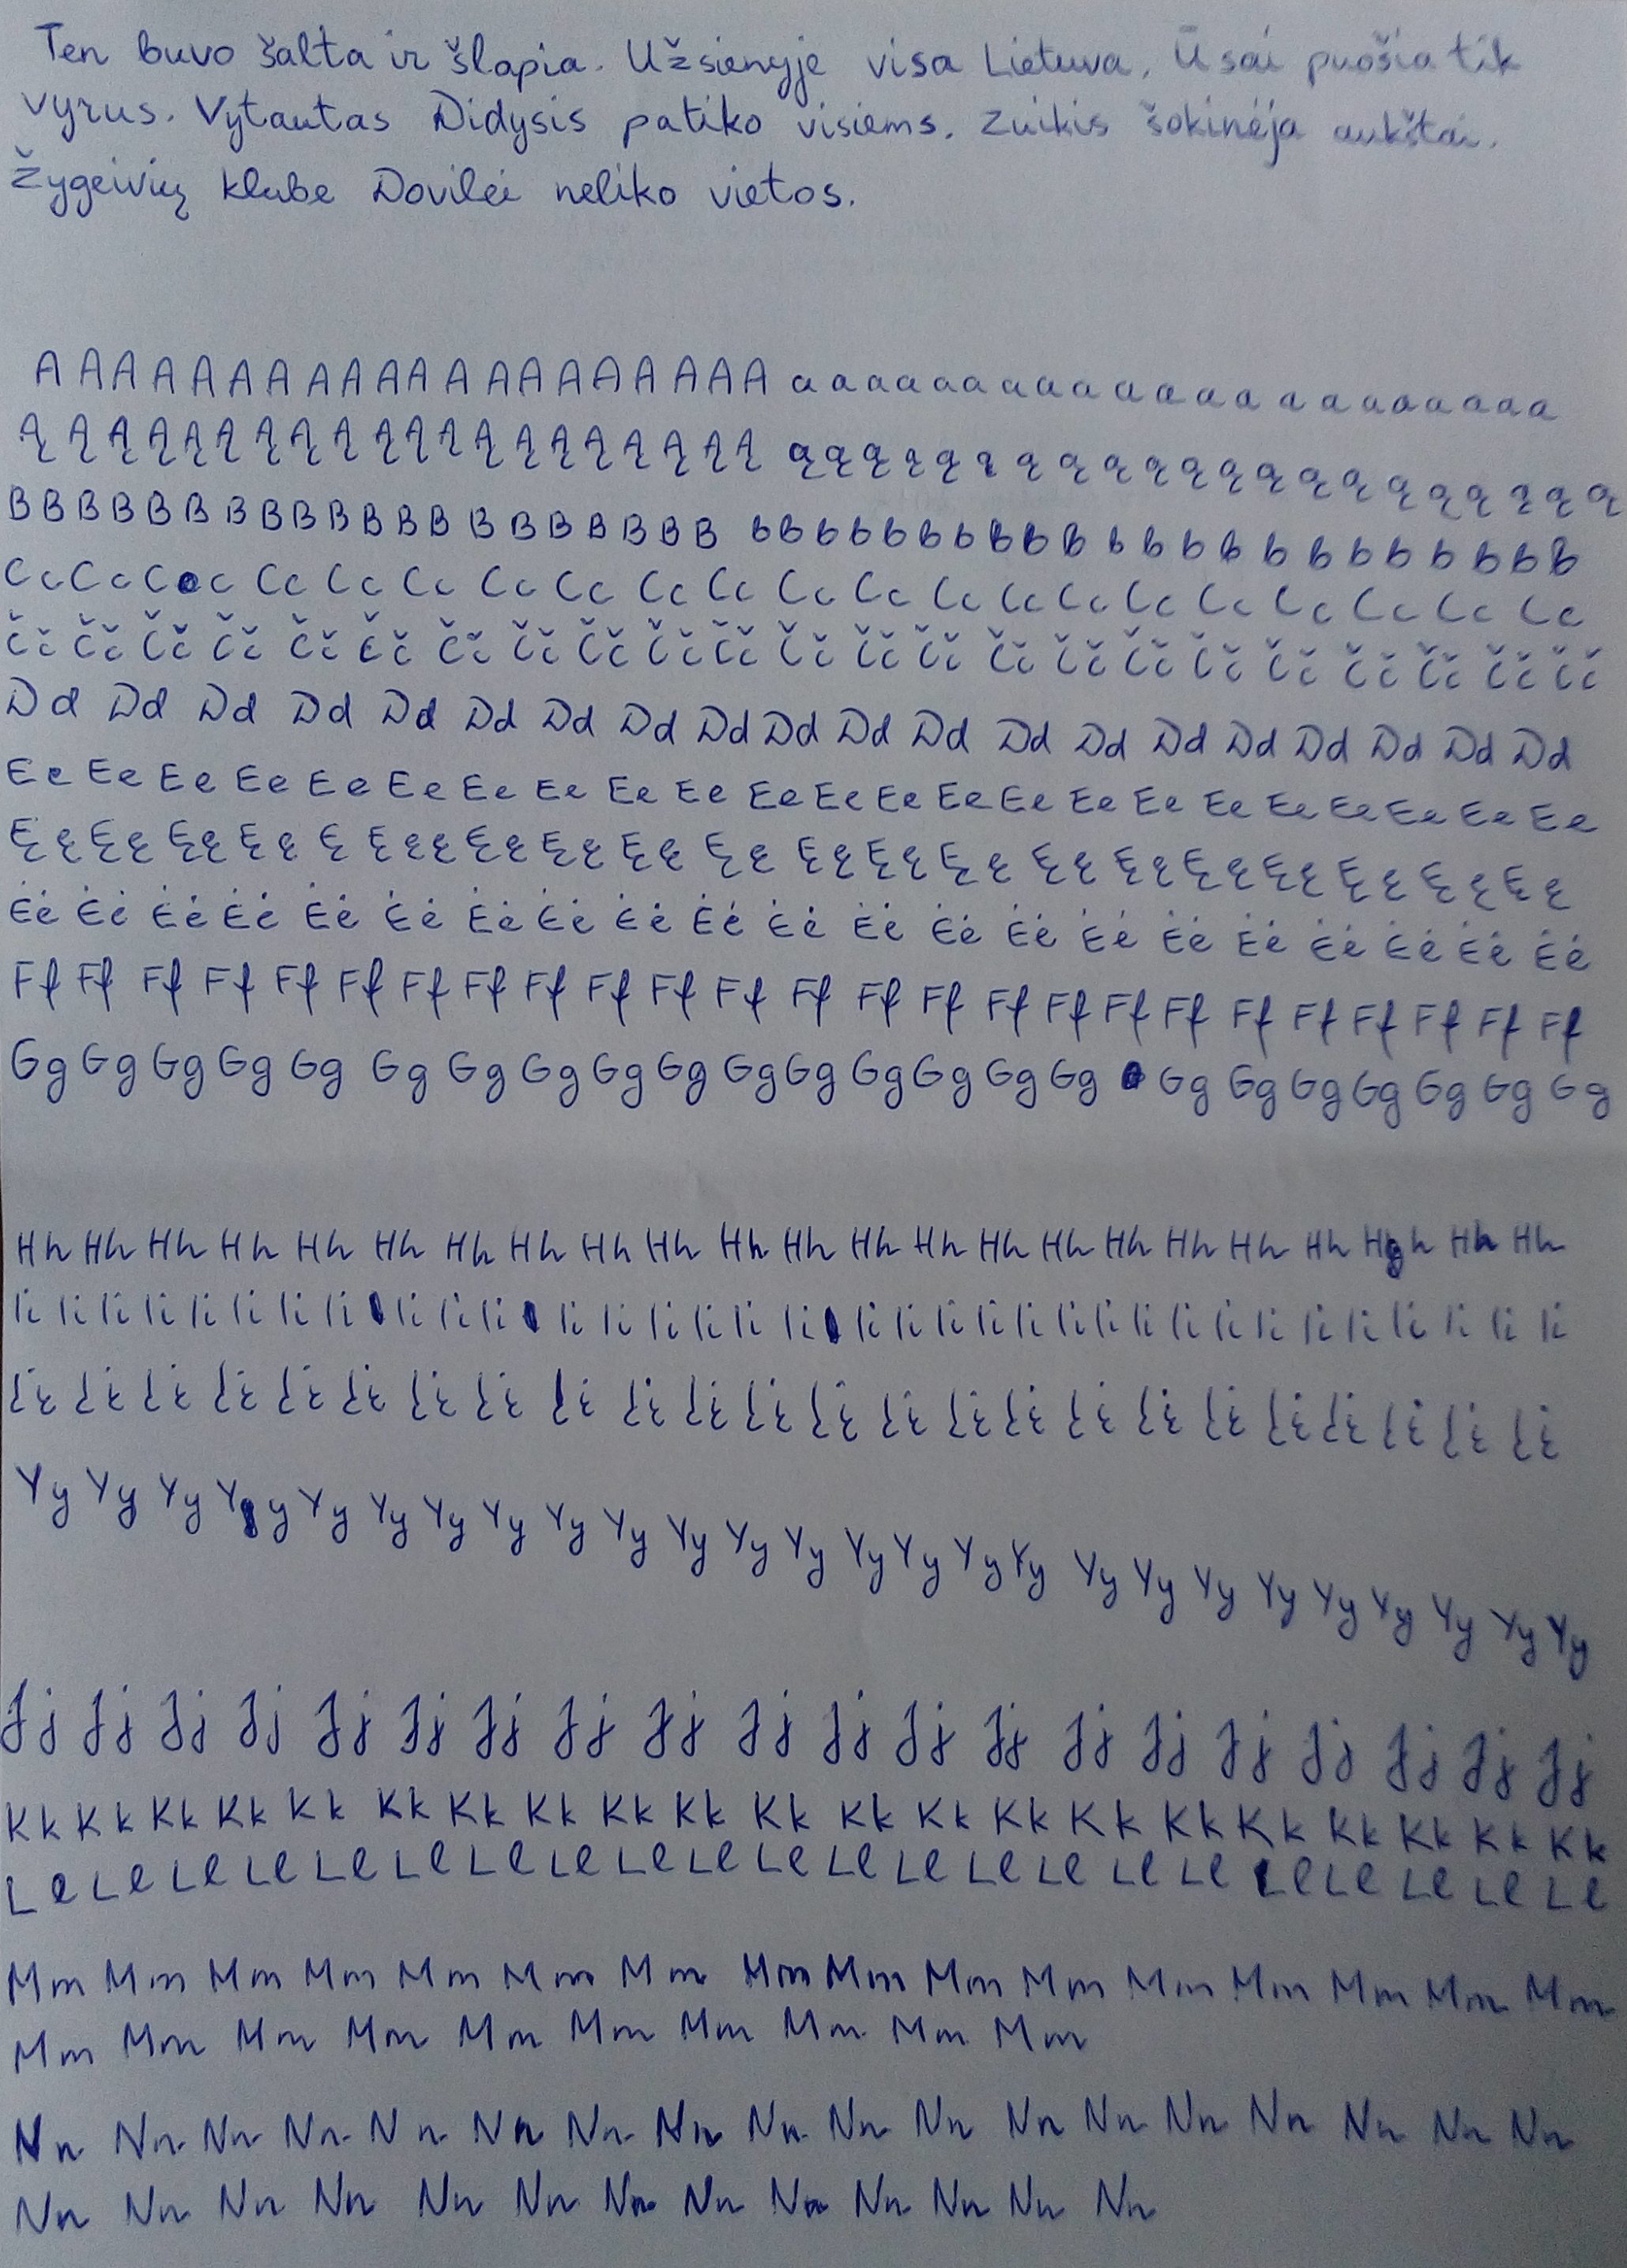 Ten buvo šalta ir šlapia. Užsienyje visa Lietuva. Ūsai puošia tik
vyrus. Vytautas Didysis patiko visiems. Zuikis šokinėja aukštai.
Žygeivių klube Dovilei neliko vietos.
A A A A A A A A A A A A A A A A A A A A a a a a a a a a a a a a a a a a a a a a a
Ą Ą Ą Ą Ą Ą Ą Ą Ą Ą Ą Ą Ą Ą Ą Ą Ą Ą Ą Ą ą ą ą ą ą ą ą ą ą ą ą ą ą ą ą ą ą ą ą ą ą ą ą
B B B B B B B B B B B B B B B B B B B B b b b b b b b b b b b b b b b b b b b b b b b b
Cc Cc C c Cc Cc Cc Cc Cc Cc Cc Cc Cc Cc Cc Cc Cc Cc Cc Cc Cc Cc
Čč Čč Čč Čč Čč Čč Čč Čč Čč Čč Čč Čč Čč Čč Čč Čč Čč Čč Čč Čč Čč Čč Čč
Dd Dd Dd Dd Dd Dd Dd Dd Dd Dd Dd Dd Dd Dd Dd Dd Dd Dd Dd Dd
Ee Ee Ee Ee Ee Ee Ee Ee Ee Ee Ee Ee Ee Ee Ee Ee Ee Ee Ee Ee Ee Ee Ee
Ęę Ęę Ęę Ęę Ę Ęę ęę Ęę Ęę Ęę Ęę Ęę Ęę Ęę Ęę Ęę Ęę Ęę Ęę Ęę Ęę
Ėė Ėė Ėė Ėė Ėė Ėė Ėė Ėė Ėė Ėė Ėė Ėė Ėė Ėė Ėė Ėė Ėė Ėė Ėė Ėė Ėė
Ff Ff Ff Ff Ff Ff Ff Ff Ff Ff Ff Ff Ff Ff Ff Ff Ff Ff Ff Ff Ff Ff Ff Ff Ff
Gg Gg Gg Gg Gg Gg Gg Gg Gg Gg Gg Gg Gg Gg Gg Gg Gg Gg Gg Gg Gg Gg Gg
Hh Hh Hh Hh Hh Hh Hh Hh Hh Hh Hh Hh Hh Hh Hh Hh Hh Hh Hh Hh H h Hh Hh
Ii Ii Ii Ii Ii Ii Ii Ii Ii Ii Ii Ii Ii Ii Ii Ii Ii Ii Ii Ii Ii Ii Ii Ii Ii Ii Ii Ii Ii Ii Ii Ii Ii
Įį Įį Įį Įį Įį Įį Įį Įį Įį Įį Įį Įį Įį Įį Įį Įį Įį Įį Įį Įį Įį Įį Įį Įį
Yy Yy Yy Y y Yy Yy Yy Yy Yy Yy Yy Yy Yy Yy Yy Yy Yy Yy Yy Yy Yy Yy Yy Yy Yy Yy
Jj Jj Jj Jj Jj Jj Jj Jj Jj Jj Jj Jj Jj Jj Jj Jj Jj Jj Jj Jj
Kk Kk Kk Kk Kk Kk Kk Kk Kk Kk Kk Kk Kk Kk Kk Kk Kk Kk Kk Kk Kk
Ll Ll Ll Ll Ll Ll Ll Ll Ll Ll Ll Ll Ll Ll Ll Ll Ll Ll Ll Ll Ll Ll
Mm Mm Mm Mm Mm Mm Mm Mm Mm Mm Mm Mm Mm Mm Mm Mm
Mm Mm Mm Mm Mm Mm Mm Mm Mm Mm
Nn Nn Nn Nn Nn Nn Nn Nn Nn Nn Nn Nn Nn Nn Nn Nn Nn Nn
Nn Nn Nn Nn Nn Nn Nn Nn Nn Nn Nn Nn Nn